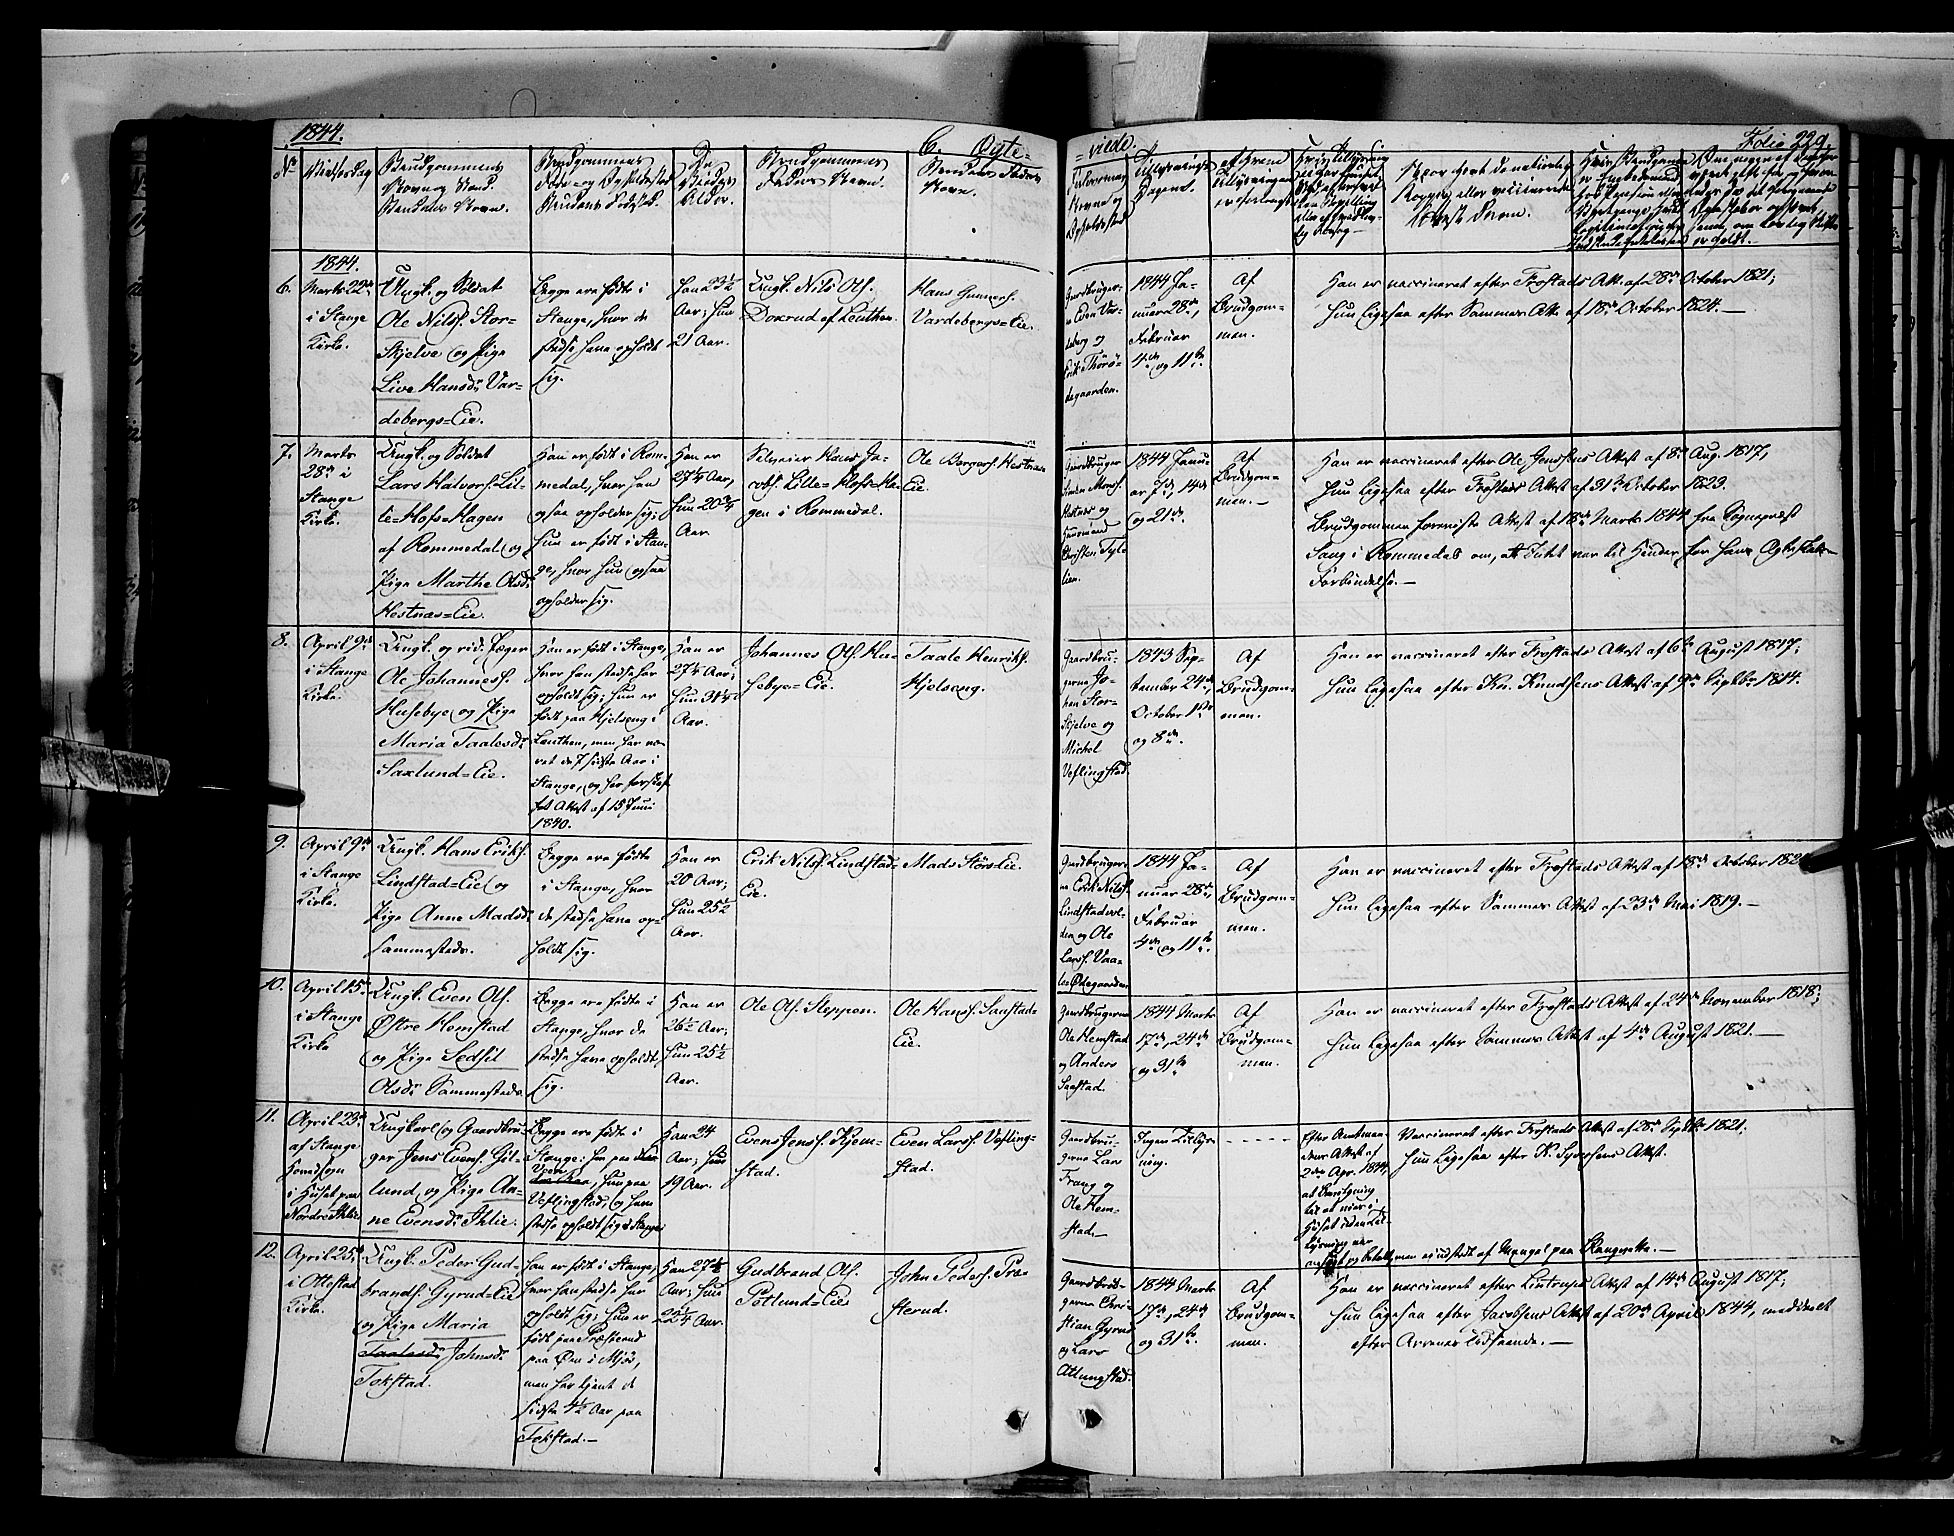 1844.
C. Ægte=
=viede.
Folio 229.
No
Vielsesdag
Brudgommens
Navn og Stand
Brudens Navn.
Brudgommens
Føde- og Opholdssted
Brudens Fødested.
De
Viedes
Alder.
Brudgommens
Faders Navn.
Brudens Faders
Navn.
Forlovernes
Navne og
Opholdssted
Tillysnings
Dagene.
af hvem
Tillysningen
er forlangt
Naar have de naturlige
Kopper eller vaccinerede
1844.
6.
Marts 22de
i Stange
Kirke.
Ungk. og Soldat
Ole Nilss. Stor-
Skjelve og Pige
Live Hansdr Var-
debergs=Eie.
Begge ere fødte i
Stange, hvor de
stedse have opholdt
sig.
Han 23½
Aar; Hun
21 Aar.
Ungk. Nils Ols.
Doxrud af Leuthen.
Hans Gunners.
Vardebergs=Eie.
Gaardbruger-
ne Even Var-
deberg og
Erik Thorø-
degaarden.
1844 Ja-
nuar 28de,
Februar
4de og 11te.
Af
Brudgom-
men.
Han er vaccineret efter Frostads Att. af 28de October 1821;
Hun ligesaa efter Sammes Att. af 18de October 1824.—
7.
Marts
28de i
Stange
Kirke.
Ungk. og Soldat
Lars Halvors. Lil-
le=Hofs=Hagen
af Rommedal og
Pige Marthe Olsdr
Hestnæs=Eie.
Han er født i Rom-
medal, hvor han
ogsaa opholder sig;
Hun er født i Stan-
ge, hvor hun ogsaa
opholder sig.
Han er
27¼ Aar,
Hun 20¾
Aar
Selveier Hans Ja-
cobs. Lille=Hofs=Ha-
gen i Rommedal.
Ole Borgers. Hestnæs=
Eie.
1844 Janu-
ar 7de, 14de
og 21de.
Af
Brudgom-
men.—
Han er vaccineret efter Ole Jenssens Attest af 8de Aug. 1817;
Hun ligesaa efter Frostads Attest af 31te October 1823.
Brudgommen foreviste Attest af 18de Marts 1844 fra Sognepræst
Lang i Rommedal om, at Intet var til Hinder for hans Ægteskabs-
Forbindelse.—
8.
April 9de
i Stange
Kirke.
Ungk. og rid. Jæger
Ole Johanness.
Husebye og Pige
Maria Taalesdr
Saxlund=Eie.
Han er født i Stange,
hvor han stedse har
opholdt sig; Hun er
født paa Hjelseng i
Leuthen, men har væ-
ret de 7 sidste Aar i
Stange, og har forskaf-
fet Attest af 15 Juni
1840.
Han er
27¼ Aar;
Hun 31¼
Aar.
Johannes Ols. Hu-
sebye=Eie.
Taale Henriks.
Hjelseng.
Gaardbru-
gerne Jo-
han Stor-
Skjelve og
Michel
Veflingstad.
1843 Sep-
tember 24de,
October 1ste
og 8de.
Af
Brudgom-
men.
Han er vaccineret efter Frostads Attest af 6te August 1817;
Hun ligesaa efter Kn. Knudsens Attest af 9de Septbr. 1814.
9.
April 9de
i Stange
Kirke.
Ungk. Hans Eriks.
Lindstad=Eie og
Pige Anne Madsdr
sammesteds.
Begge ere fødte
i Stange, hvor
de stedse have op-
holdt sig.
Han er
20 Aar;
Hun 25½
Aar.
Erik Nilss. Lindstad=
Eie.
Mads Størs Eie.
Gaardbruger-
ne Erik Nilss.
Lindstadvol-
den og Ole
Larss. Vaa-
len Ødegaarden
1844 Ja-
nuar 28de,
Februar
4de og 11te.
Af
Brudgom-
men.
Han er vaccineret efter Frostads Attest af 18de October 182
Hun ligesaa efter Sammes Attest af 23de Mai 1819.—
10.
April 15de
i Stange
Kirke
Ungk. Even Ols.
Østre Hemstad
og Pige Sedsil
Olsdr Sammesteds.
Begge ere fødte i
Stange, hvor de
stedse have opholdt
sig.
Han er
26½ Aar;
Hun 25½
Aar.
Ole Ols. Steppen.
Ole Hans. Saastad=
Eie.
Gaardbrugerne
Ole Hemstad
og Anders
Saastad.
1844 Marts
17de, 24de
og 31te
Af
Brudgom-
men.
Han er vaccineret efter Frostads Attest af 24de November 1818;
Hun ligesaa efter Sammes Attest af 4de August 1821.—
11.
April 23de
af Stange
Hovedsogn
i Huset paa
Nordre Ihlie.
Ungkarl og Gaardbru-
ger Jens Evens. Gil-
lund og Pige An-
ne Evensdr Ihlie.
Begge ere fødte i
Stange: han paa
Hun paa
Veflingstad, og have
stedse opholdt sig i Stange
Han 24
Aar; Hun
19 Aar.
Even Jenss. Kjem-
stad.
Even Larss. Vefling-
stad.
Gaardbru-
gerne Lars
Frang og
Ole Hem-
stad.
Ingen Tillys-
ning.
- - - - -
Efter Amtman-
dens Attest af
2den Apr. 1844,
at Bevilgning
til at vies i
Huset uden Til-
lysning var
ansøgt og betalt, men ei udstedt af Mangel paa Blanquetter.—
Vaccineret efter Frostads Attest af 28de Septbr. 1821;
Hun ligesaa efter K. Syversens Attest.
12.
April 25de
i Ottestad
Kirke.
Ungk. Peder Gud-
brands. Gyrud=Eie
og Pige Maria
Taalesdr Johnsdr
Tokstad.
Han er født i Stange,
hvor han stedse har
opholdt sig; Hun er
født paa Præsterud
paa Øen i Mjøs,
men har tjent de
sidste 4½ Aar paa
Tokstad.—
Han 27½
Aar; Hun
22¼ Aar.
Gudbrand Ols.
Potlund=Eie
John Peders. Præ-
sterud.
Gaardbru-
gerne Chri-
stian Gyrud
og Lars
Attungstad.
1844 Marts
17de, 24de
og 31te.
Af
Brudgom-
men.
Han er vaccineret efter Listrups Attest af 14de August 1817;
Hun ligesaa efter Jacobsens Attest af 20de April 1844, meddeelt
efter Arrenes Udseende.—